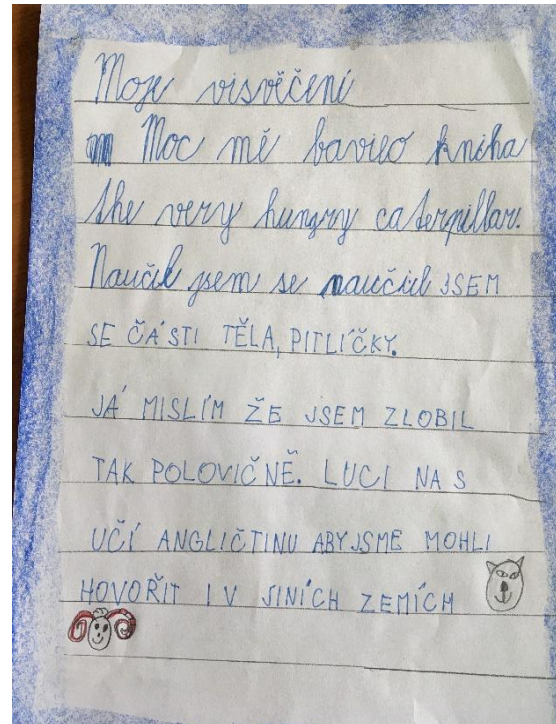 Moje visvěčení
Moc mě bavilo kniha
the very hungry caterpillar.
Naučil jsem se naučil JSEM
SE ČÁSTI TĚLA, PITLÍČKY.
JÁ MISLÍM ŽE JSEM ZLOBIL
TAK POLOVIČNĚ. LUCI NAS
UČÍ ANGLIČTINU ABYJSME MOHLI
HOVOŘIT I V JINÍCH ZEMÍCH